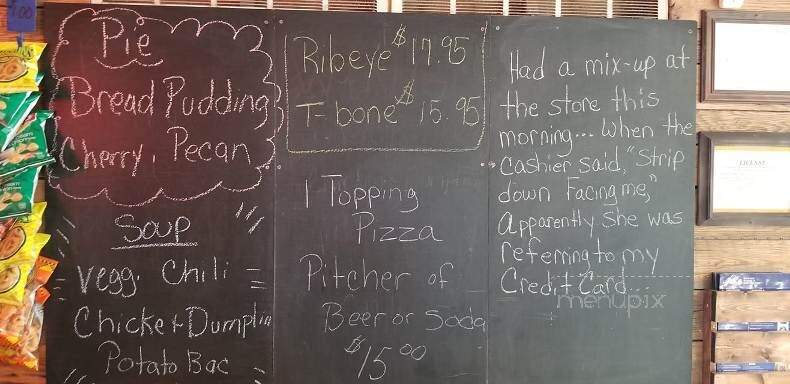 Pie
Bread Pudding
Cherry, Pecan
Soup
Veggi Chili
Chicke + Dumplin
Potato Bac
Ribeye $17.95
T-bone $15.95
1 Topping
Pizza
Pitcher of
Beer or Soda
$15.00
Had a mix-up at
the store this
morning... When the
Cashier said, "Strip
down Facing me,"
apparently she was
referring to my
Credit Card...
menupix
LICENSE